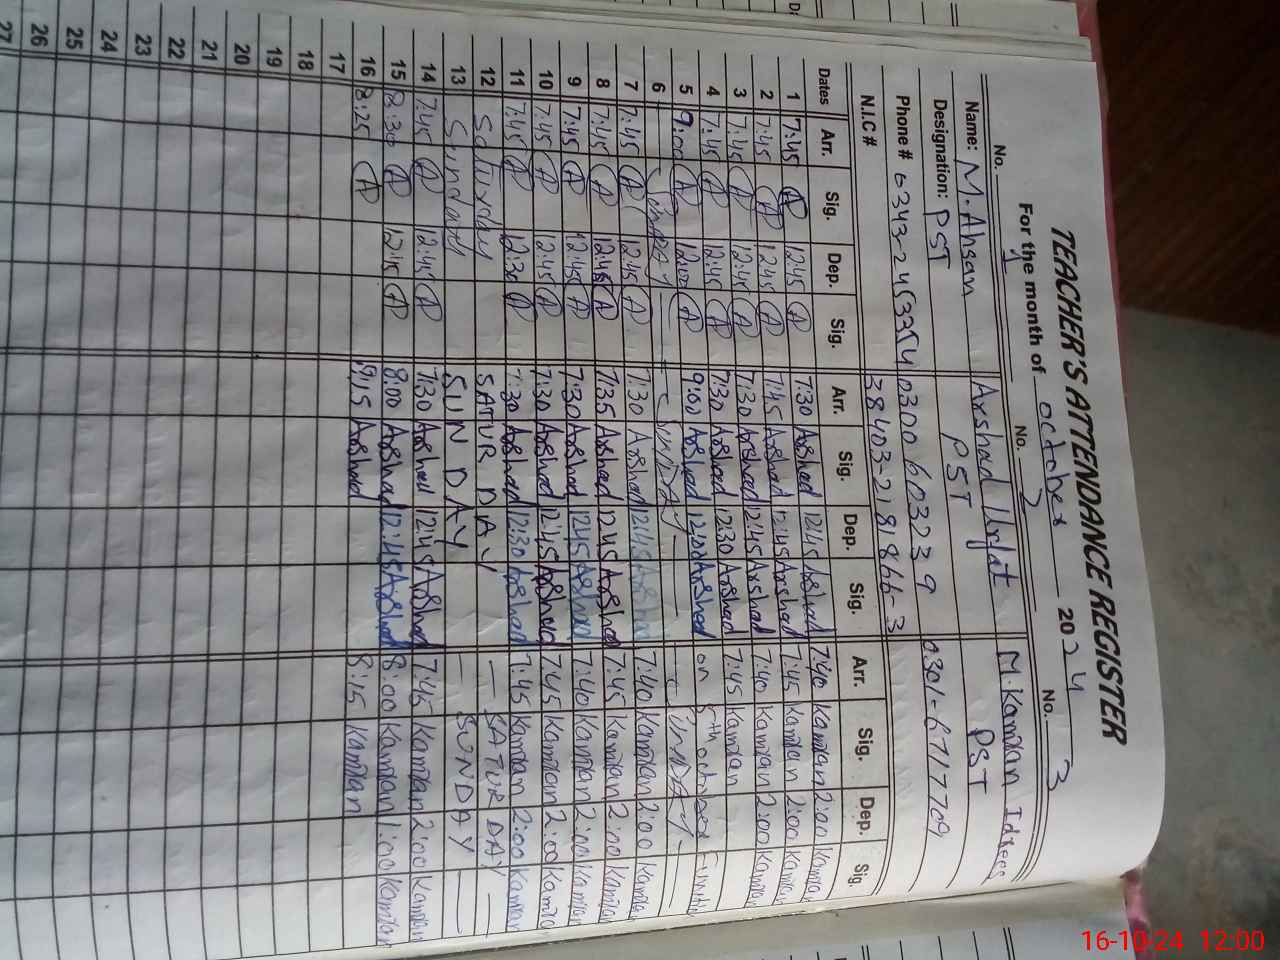 TEACHER'S ATTENDANCE REGISTER
For the month of October 2024
No. 1 No. 2 No. 3
Name: M. Ahsan Arshad M. Kamran Idrees
Designation: PST PST PST
Phone # 0300 6032339 0301-6717709
N.I.C # 38403-2181866-3
Dates Arr. Sig. Dep. Sig. Arr. Sig. Dep. Sig. Arr. Sig. Dep. Sig.
1 7:45 A 12:45 A 7:30 Arshad 12:45 Arshad 7:40 Kamran 2:00 Kamran
2 7:45 A 12:45 A 7:45 Arshad 12:45 Arshad 7:45 Kamran 2:00 Kamran
3 7:45 A 12:45 A 7:30 Arshad 12:45 Arshad 7:40 Kamran 2:00 Kamran
4 7:45 A 12:45 A 7:30 Arshad 12:30 Arshad 7:45 Kamran
5 9:00 A 12:00 A 9:00 Arshad 12:00 Arshad on 5th october
6 SUNDAY SUNDAY SUNDAY
7 7:45 A 12:45 A 7:30 Arshad 12:45 Arshad 7:40 Kamran 2:00 Kamran
8 7:45 A 12:45 A 7:35 Arshad 12:45 Arshad 7:45 Kamran 2:00 Kamran
9 7:45 A 12:45 A 7:30 Arshad 12:45 Arshad 7:40 Kamran 2:00 Kamran
10 7:45 A 12:45 A 7:30 Arshad 12:45 Arshad 7:45 Kamran 2:00 Kamran
11 7:45 A 12:30 A 7:30 Arshad 12:30 Arshad 7:45 Kamran 2:00 Kamran
12 Saturday SATURDAY — SATURDAY —
13 Sunday SUNDAY — SUNDAY —
14 7:45 A 12:45 A 7:30 Arshad 12:45 Arshad 7:45 Kamran 2:00 Kamran
15 8:30 A 12:45 A 8:00 Arshad 12:45 Arshad 8:00 Kamran 1:00 Kamran
16 8:25 A 9:15 Arshad 8:15 Kamran
17
18
19
20
21
22
23
24
25
26
27
16-10-24 12:00